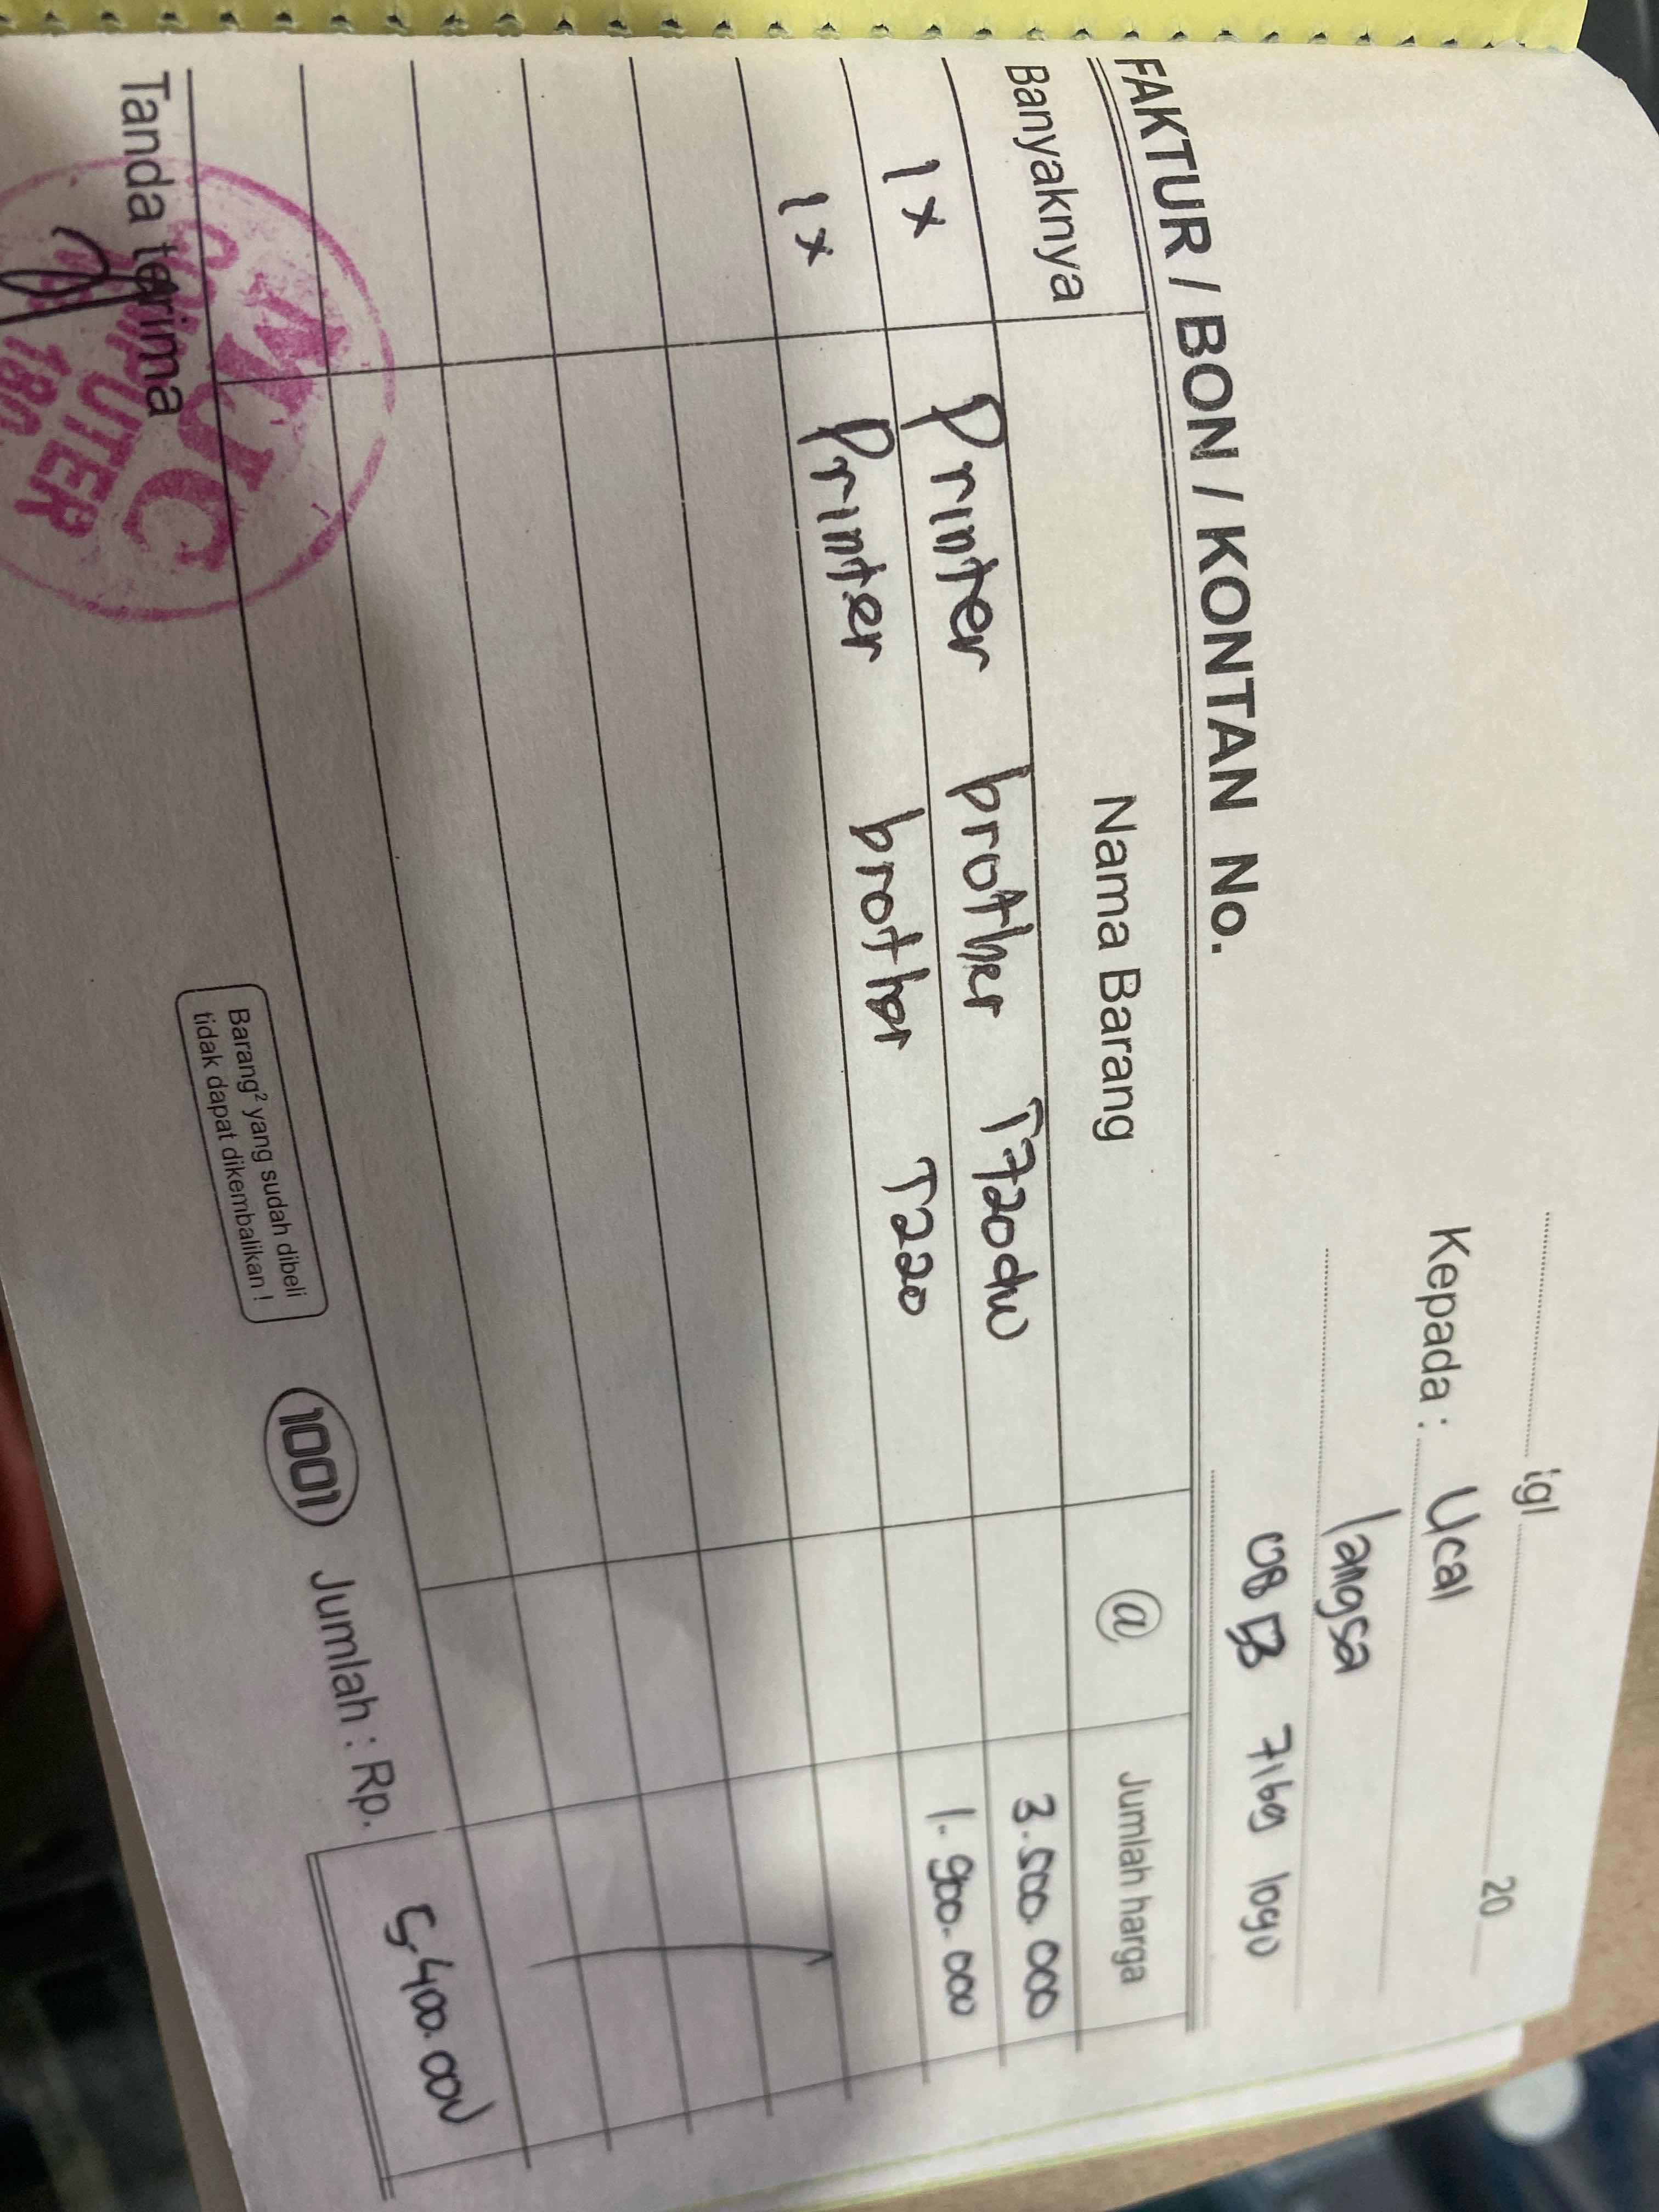 tgl 20
Kepada : Ucal
langsa
0853 7169 1090
FAKTUR / BON / KONTAN No.
Banyaknya Nama Barang @ Jumlah harga
1x Printer brother T720dw 3.500.000
1x Printer brother T220 1.900.000
Tanda terima
MJC
COMPUTER
Barang² yang sudah dibeli
tidak dapat dikembalikan !
1001
Jumlah : Rp. 5.400.000